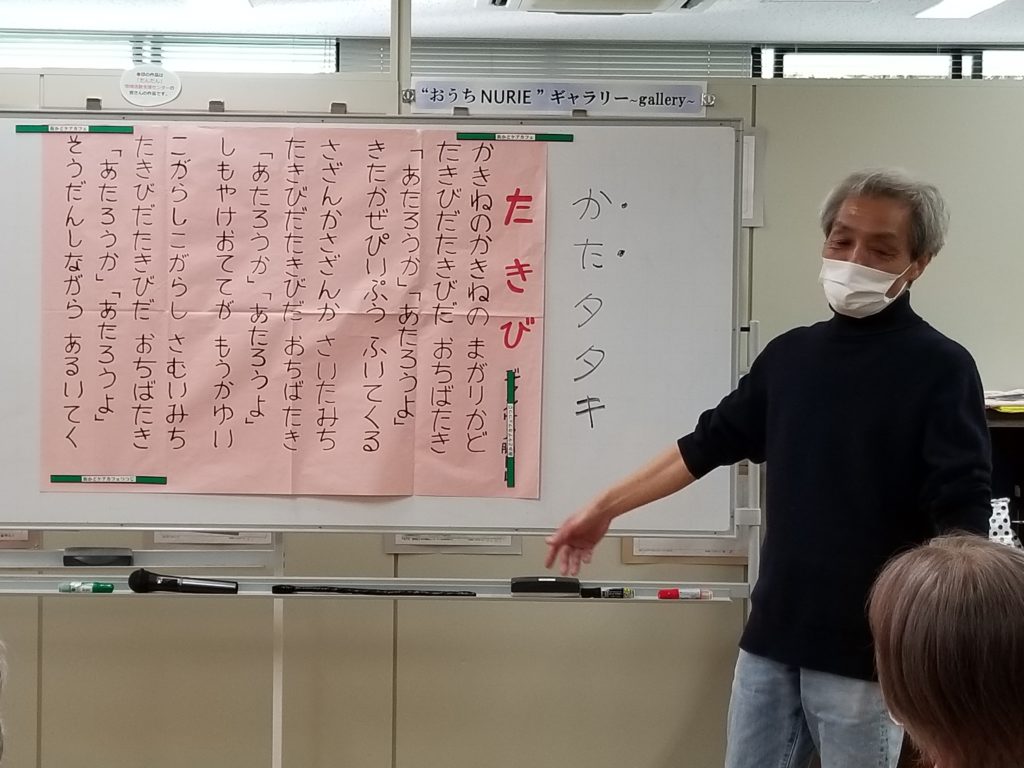 本日の作品は
“おうちNURIE”ギャラリー~gallery~
かたタタキ
たきび
かきねのかきねの まがりかど
たきびだたきびだ おちばたき
「あたろうか」「あたろうよ」
きたかぜぴいぷう ふいてくる
さざんかさざんか さいたみち
たきびだたきびだ おちばたき
「あたろうか」「あたろうよ」
しもやけおててが もうかゆい
こがらしこがらし さむいみち
たきびだたきびだ おちばたき
「あたろうか」「あたろうよ」
そうだんしながら あるいてく